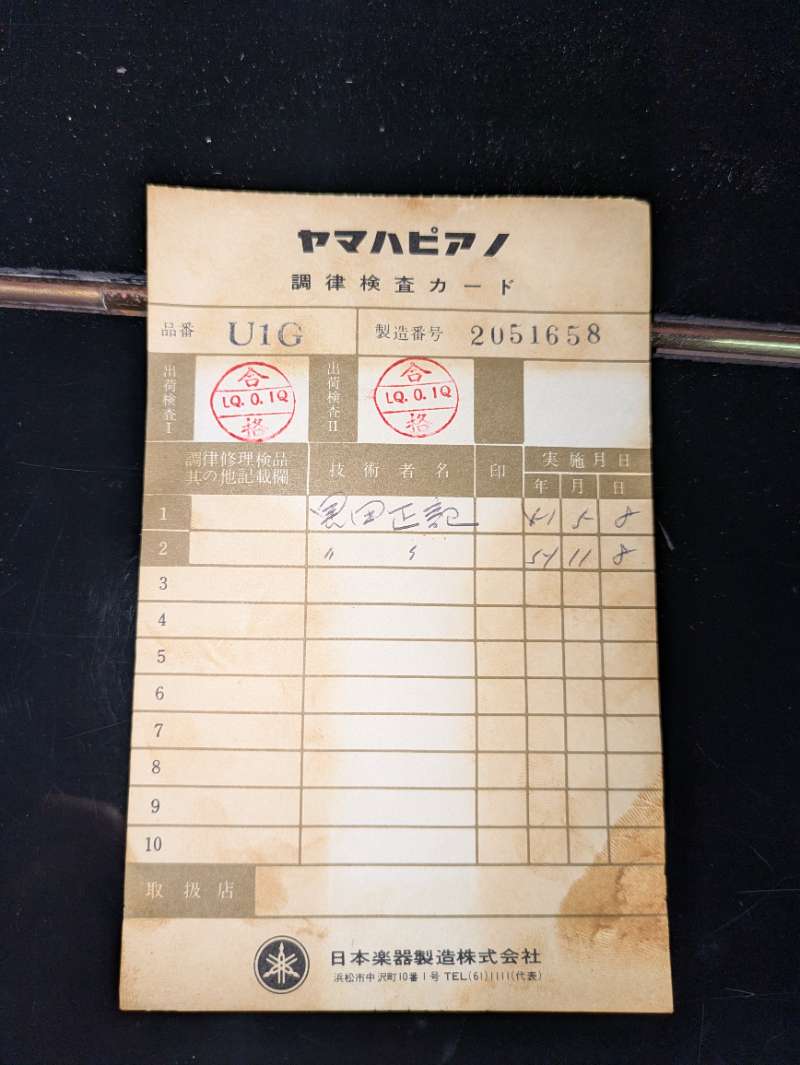 ヤマハピアノ
調律検査カード
品番 U1G 製造番号 2051658
出荷検査I 合格 LQ.0.1Q 出荷検査II 合格 LQ.0.1Q
調律修理検品其の他記載欄 技術者名 印 実施月日
年 月 日
1 田正記 5 8
2 〃 〃 54 11 8
3
4
5
6
7
8
9
10
取扱店
日本楽器製造株式会社
浜松市中沢町10番1号 TEL(61)1111(代表)